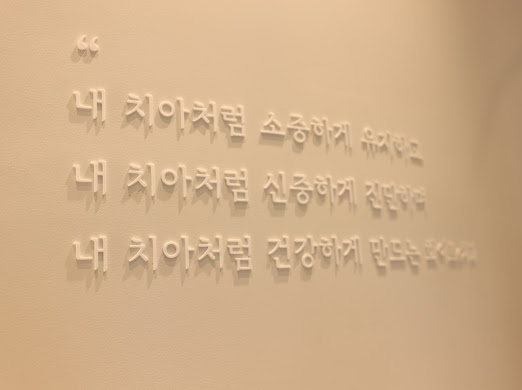 “
내 치아처럼 소중하게 유지하고
내 치아처럼 신중하게 진단하며
내 치아처럼 건강하게 만드는